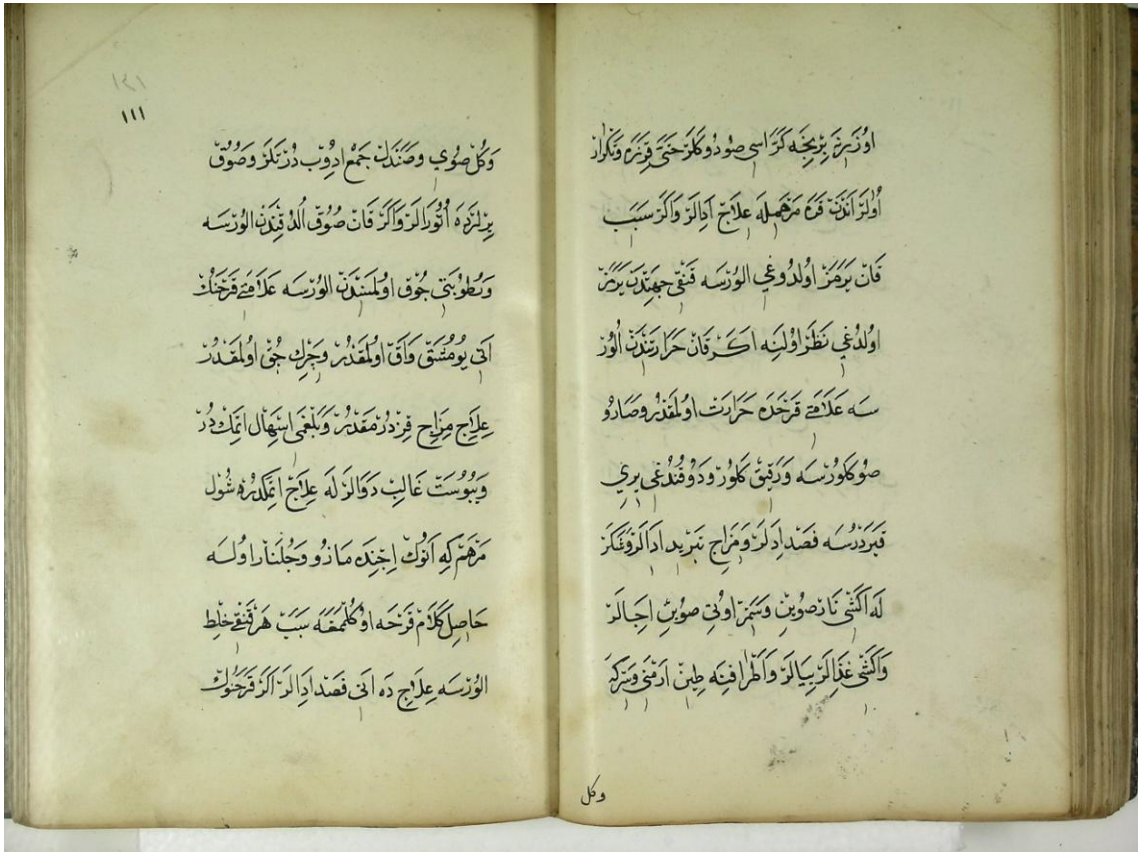 اوُزَرِينَه بِرْ بِخِنَه كَزْ اسِي صودُوكَلَرْ حَتَّى قِزَرَه وَتَكْرَارْ
اُولَرْ اَنْدَنْ قَرَه مَرْهَمِلَه عِلَاجْ اَدِالَرْ وَاكَرْ سَبَبَ
قَانْ يَرَمَزْ اولدُوغِي الورْسَه قَنْقِي جِهَتِدَنْ يَرَمَزْ
اولدُغِي نَظَرْ اوُلِنَه اَكَرْ قَانْ حَرَارَتِنْدَنْ اَلُورْ
سَه عَلَامَتِ قَرْحَدَه حَرَارَتْ اولمَقْدُرْ وصَارُو
صُو كَلورْسَه وَرَقِيقْ كَلورْ وَدوُقُندُغِي يِرِي
قَبَرْدرْسَه فَصْد اِدَلَرْ وَمِزَاجْ تَبْرِيد ادَالَرْ
لَه اَكْشِي نَارْ صوُيِنْ وَسَمِزْ اوُتِي صوُيِنْ اِچَالَرْ
وَاَكْشِي غِذَالَرْ يِيَالَرْ وَاَطْرَافِنَه طِينْ اَرْمَنِي وَسِرْكَه
وكل
١١١
وَكُلْ صُوُيِ وصَنْدَلْ جَمْعْ ادُوبْ دُرْتَلَرْ وَصُوُقْ
يِرْلَرْدَه اُتُورَالَرْ وَاكَرْ قَانْ صُوُقْ اُلْدُقِنْدَنْ الورْسَه
وَرُطُوبَتِي جُوقْ اولمَسِنْدَنْ الورْسَه عَلَامَتِ قَرْحَنُكْ
اَتِي يُومُشَقْ وَاَقْ اولمَقْدُرْ وَچِرْكِ جُقْ اولمَقْدُرْ
عِلَاجْ مِزَاجِ قِزْدُرْمَقْدُرْ وَبَلْغَمِي اِسْهَال اتْمَكْ دُرْ
وَيُبُوسَتْ غَالِبْ دَوَالَرْ لَه عِلَاجْ اتمَكْدُرْ شُولْ
مَرْهَمْ كِه اَنُوكْ اِچِنْدَه مَازُو وَجُلَّنَارْ اوُلَسَه
حَاصِلِ كَلَامْ قَرْحَه اوُكُلمَمَغَه سَبَبْ هَرْ قَنْقِ خِلِطْ
الورْسَه عِلَاجْ دَه اَنِي فَصْد ادَالَرْ اَكَرْ قَرْحَنُوكْ